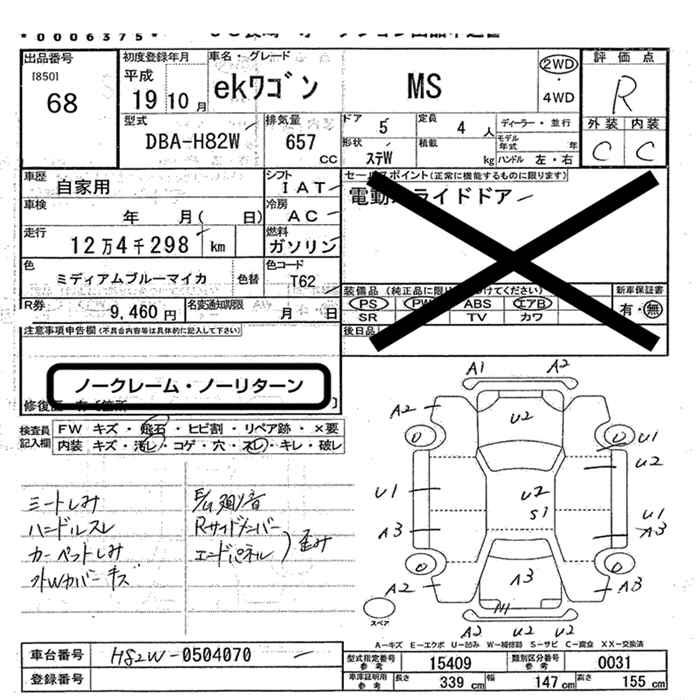 *0006375*
出品番号
[850]
68
初度登録年月
平成
19 10 月
車名・グレード
ekワゴン MS
2WD
・
4WD
評価点
R
外装 内装
C C
型式
DBA-H82W
排気量
657
CC
ドア
5
定員
4 人
ディーラー・並行
形状
ステW
積載
kg
モデル年式 年
ハンドル 左・右
車歴
自家用
シフト
IAT
車検
年 月( 日)
冷房
AC
走行
12万4千298 km
燃料
ガソリン
色
ミディアムブルーマイカ
色替
色コード
T62
R券
9,460円
名変通知期限
月 日
セールスポイント(正常に機能するものに限ります)
電動スライドドア
装備品(純正品に限り 付けてください)
PS PW ABS エアB
SR TV カワ
新車保証書
有・無
後日品
注意事項申告欄(不具合内容等は具体的に記入して下さい)
ノークレーム・ノーリターン
検査員
記入欄
FW キズ・飛石・ヒビ割・リペア跡・×要
内装 キズ・汚レ・コゲ・穴・スレ・キレ・破レ
シートしみ
ハンドルスレ
カーペットしみ
Rサイドメンバー
エンドパネル
歪み
A1 A2
A2 U2
U1
U2
U1 U2
S1
A3
U1
A3
A3
A2 A3
A2 U2 U2
スペア
A-キズ E-エクボ U-凹み W-補修跡 S-サビ C-腐食 XX-交換済
車台番号
H82W-0504070
登録番号
型式指定番号
参考
15409
類別区分番号
参考
0031
車庫証明用
参考
長さ
339 cm
幅
147 cm
高さ
155 cm